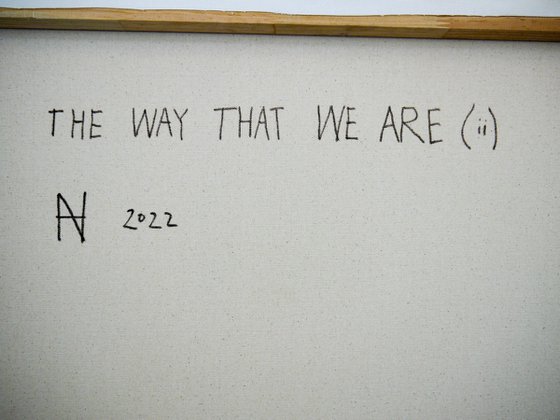 THE WAY THAT WE ARE (ii)
N 2022